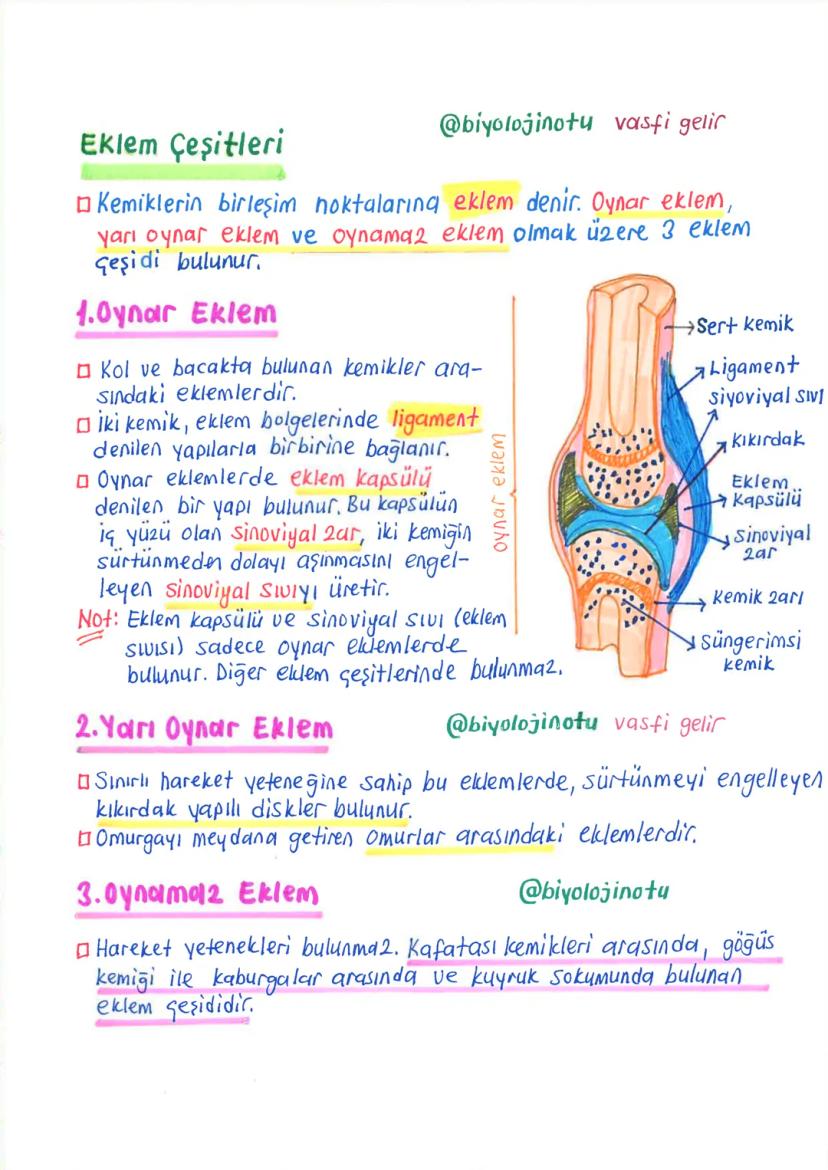 @biyolojinotu vasfi gelir
Eklem Çeşitleri
Kemiklerin birleşim noktalarına eklem denir. Oynar eklem,
yarı oynar eklem ve oynamaz eklem olmak üzere 3 eklem
çeşidi bulunur.
1.Oynar Eklem
Kol ve bacakta bulunan kemikler ara-
sındaki eklemlerdir.
İki kemik, eklem bölgelerinde ligament
denilen yapılarla birbirine bağlanır.
Oynar eklemlerde eklem kapsülü
denilen bir yapı bulunur. Bu kapsülün
iç yüzü olan sinoviyal zar, iki kemiğin
sürtünmeden dolayı aşınmasını engel-
leyen sinoviyal sıvıyı üretir.
Not: Eklem kapsülü ve sinoviyal sıvı (eklem
sıvısı) sadece oynar eklemlerde
bulunur. Diğer eklem çeşitlerinde bulunmaz.
oynar eklem
Sert kemik
Ligament
siyoviyal sıvı
Kıkırdak
Eklem
Kapsülü
Sinoviyal
zar
Kemik zarı
Süngerimsi
kemik
2.Yarı Oynar Eklem
@biyolojinotu vasfi gelir
Sınırlı hareket yeteneğine sahip bu eklemlerde, sürtünmeyi engelleyen
kıkırdak yapılı diskler bulunur.
Omurgayı meydana getiren omurlar arasındaki eklemlerdir.
3.Oynamaz Eklem
@biyolojinotu
Hareket yetenekleri bulunmaz. Kafatası kemikleri arasında, göğüs
kemiği ile kaburgalar arasında ve kuyruk sokumunda bulunan
eklem çeşididir.